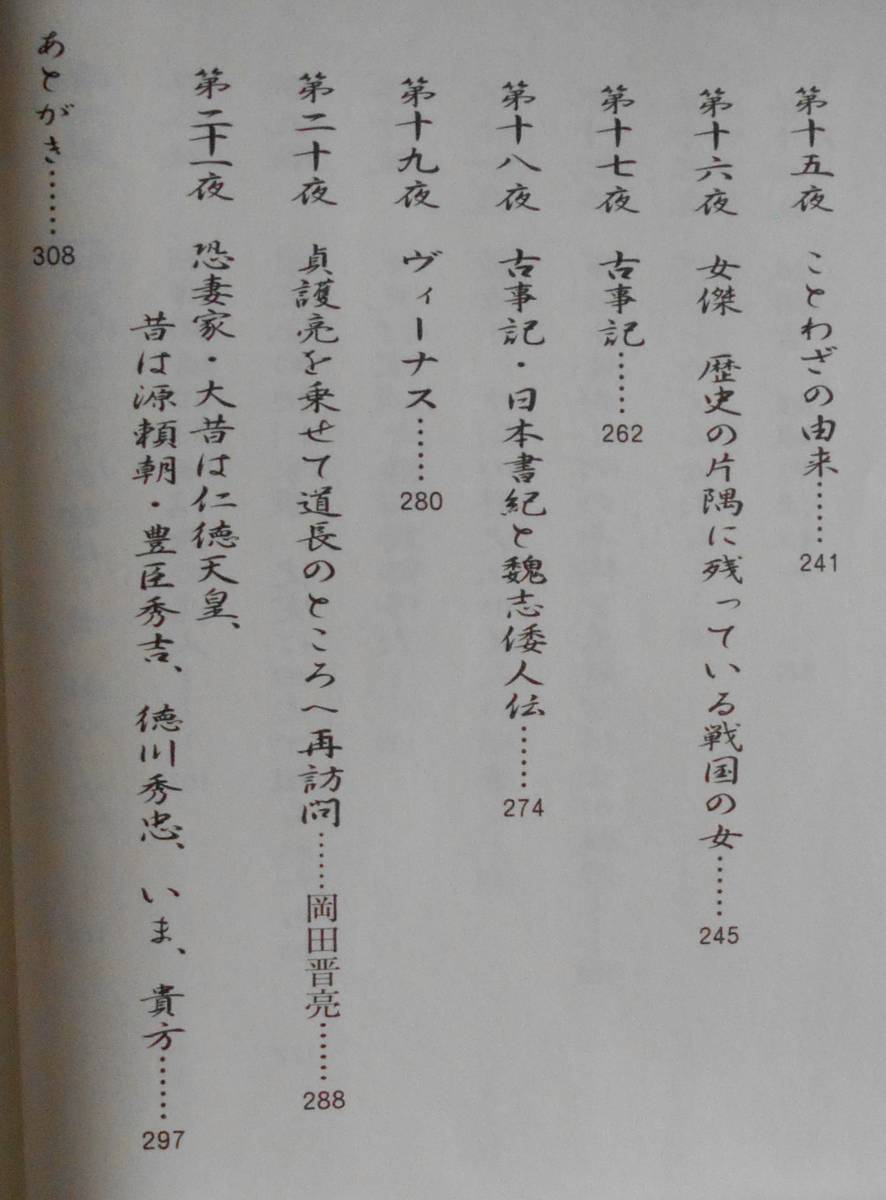 第十五夜　ことわざの由来……241
第十六夜　女傑　歴史の片隅に残っている戦国の女……245
第十七夜　古事記……262
第十八夜　古事記・日本書紀と魏志倭人伝……274
第十九夜　ヴィーナス……280
第二十夜　貞護亮を乗せて道長のところへ再訪問……岡田晋亮……288
第二十一夜　恐妻家・大昔は仁徳天皇、
昔は源頼朝・豊臣秀吉、徳川秀忠、いま、貴方……297
あとがき……308